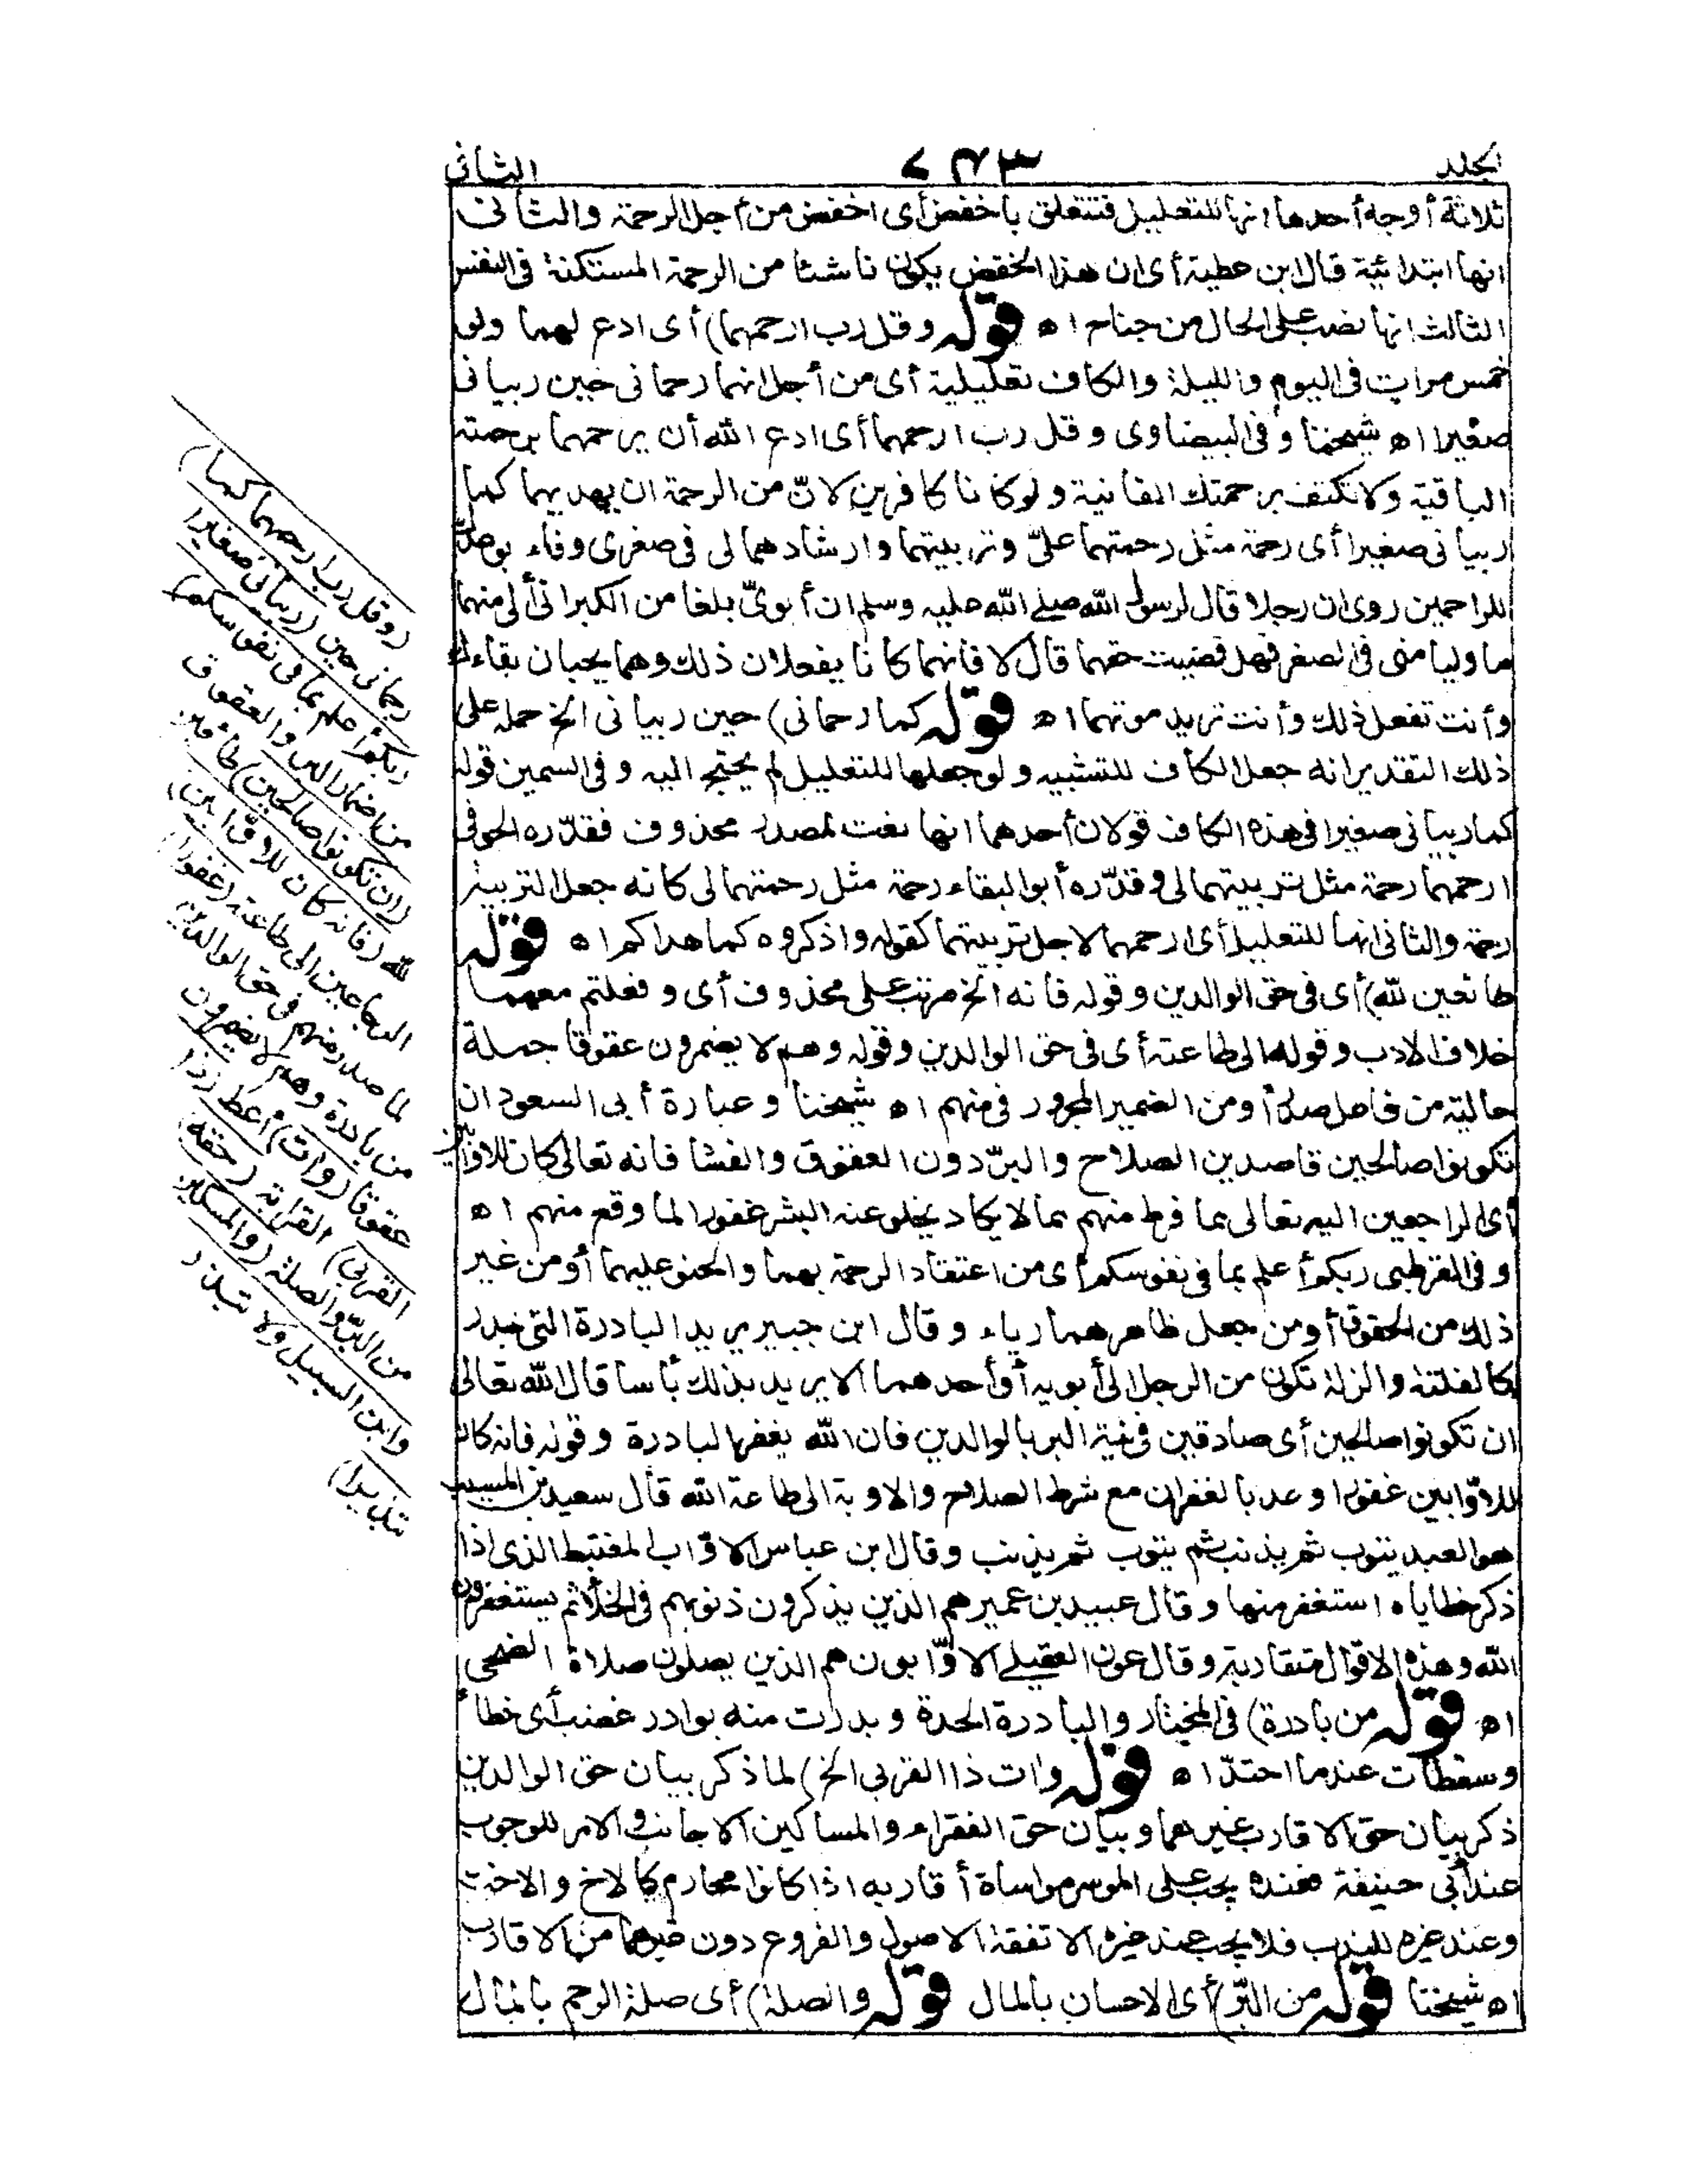 الجلد
٧٤٣
الثانى
ثلاثة أوجه أحدها انها للتعليل فتتعلق باخفض أى اخفض من أجل الرحمة والثانى
انها ابتدائية قال ابن عطية أى ان هذا الخفض يكون ناشئا من الرحمة المستكنة فى النفس
الثالث انها نصب على الحال من جناح اه قوله وقل رب ارحمهما) أى ادع لهما ولو
خمس مرات فى اليوم والليلة والكاف تعليلية أى من أجل انهما رحمانى حين ربيانى
صغيرا اه شيخنا وفى البيضاوى وقل رب ارحمهما أى ادع الله أن يرحمهما برحمته
الباقية ولا تكتف برحمتك الفانية ولو كانا كافرين لانّ من الرحمة ان يهديهما كما
ربيانى صغيرا أى رحمة مثل رحمتهما علىّ وتربيتهما وارشادهما لى فى صغرى وفاء بوعدك
للراحمين روى ان رجلا قال لرسول الله صلى الله عليه وسلم ان أبوىّ بلغا من الكبر انى ألى منهما
ما وليا منى فى الصغر فهل قضيت حقهما قال لا فانهما كانا يفعلان ذلك وهما يحبان بقاءك
وأنت تفعل ذلك وأنت تريد موتهما اه قوله كما رحمانى) حين ربيانى الخ حمله على
ذلك التقدير انه جعل الكاف للتشبيه ولو جعلها للتعليل لم يحتج اليه وفى السمين قوله
كما ربيانى صغيرا فى هذه الكاف قولان أحدهما انها نعت لمصدر محذوف فقدّره الحوفى
ارحمهما رحمة مثل تربيتهما لى وقدّره أبو البقاء رحمة مثل رحمتهما لى كانه جعل التربية
رحمة والثانى انها للتعليل أى ارحمهما لاجل تربيتهما كقوله واذكروه كما هداكم اه قوله
طائعين لله) أى فى حق الوالدين وقوله فانه الخ مرتب على محذوف أى وفعلتم معهما
خلاف الادب وقوله الى طاعته أى فى حق الوالدين وقوله وهم لا يضمرون عقوقا جملة
حالية من فاعل صدر أو من الضمير المجرور فى منهم اه شيخنا وعبارة أبى السعود ان
تكونوا صالحين قاصدين الصلاح والبرّ دون العقوق والفسا فانه تعالى كان للاوّابين
أى الراجعين اليه تعالى عما فرط منهم مما لا يكاد يخلو عنه البشر غفورا لما وقع منهم اه
وفى القرطبى ربكم أعلم بما فى نفوسكم أى من اعتقاد الرحمة بهما والحنو عليهما أو من غير
ذلك من الحقوق أو من جعل ظاهرهما رياء وقال ابن جبير يريد البادرة التى تبدر
كالفلتة والزلة تكون من الرجل الى أبويه أو أحدهما لا يريد بذلك بأسا قال الله تعالى
ان تكونوا صالحين أى صادقين فى نية البر بالوالدين فان الله يغفر البادرة وقوله فانه كان
للاوّابين غفورا وعد بالغفران مع شرط الصلاح والاوبة الى طاعة الله قال سعيد بن المسيب
هو العبد يتوب ثم يذنب ثم يتوب ثم يذنب وقال ابن عباس الاوّاب المغتبط الذى اذا
ذكر خطاياه استغفر منها وقال عبيد بن عمير هم الذين يذكرون ذنوبهم فى الخلاء ثم يستغفرون
الله وهذه الاقوال متقاربة وقال عون العقيلى الاوّابون هم الذين يصلون صلاة الضحى
اه قوله من بادرة) فى المختار والبادرة الحدة وبدرت منه بوادر غضب أى خطأ
وسقطات عندما احتدّ اه قوله وات ذا القربى الخ) لما ذكر بيان حق الوالدين
ذكر بيان حق الاقارب غيرهما وبيان حق الفقراء والمساكين الاجانب والامر للوجوب
عند أبى حنيفة فعنده يجب على الموسر مواساة أقاربه اذا كانوا محارم كالاخ والاخت
وعند غيره للندب فلا يجب عند غيره الا نفقة الاصول والفروع دون غيرهما من الاقارب
اه شيخنا قوله من البرّ) أى الاحسان بالمال قوله والصلة) أى صلة الرحم بالمال
(وقل رب ارحمهما كما)
رحمانى حين (ربيانى صغيرا
ربكم أعلم بما فى نفوسكم)
من اضمار البر والعقوق
(ان تكونوا صالحين) طائعين
لله (فانه كان للاوّابين)
الرجاعين الى طاعته (غفورا)
لما صدر منهم فى حق الوالدين
من بادرة وهم لا يضمرون
عقوقا (وات) أعط (ذا
القربى) القرابة (حقه)
من البرّ والصلة (والمسكين
وابن السبيل ولا تبذر
تبذيرا)